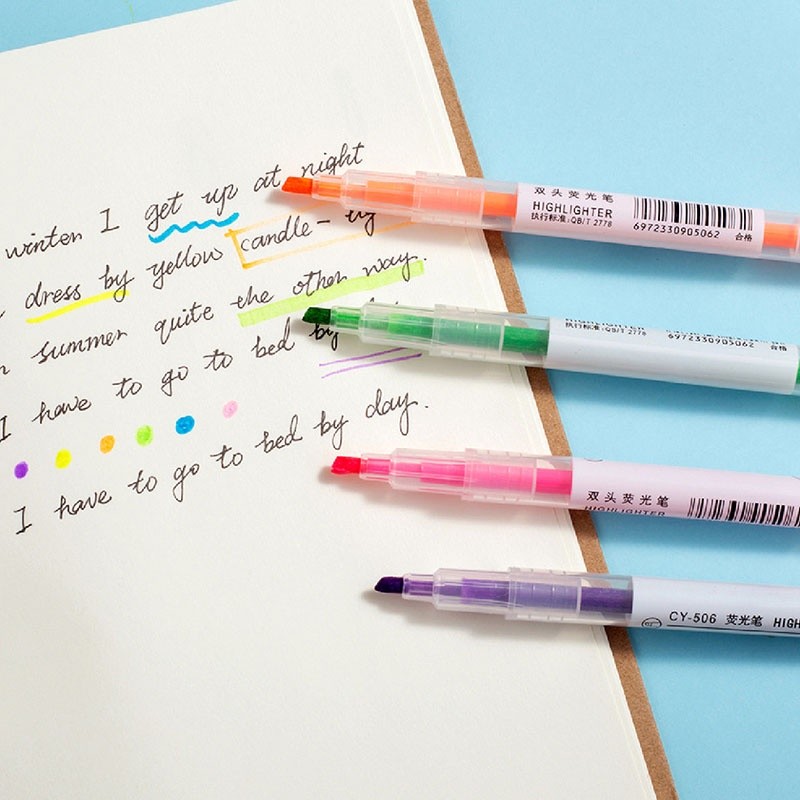 winter I get up at night
dress by yellow candle-
summer quite the other way.
I have to go to bed by
I have to go to bed by day.
双头荧光笔
HIGHLIGHTER
执行标准:QB/T 2778
6972330905062 合格
HIGHLIGHTER
执行标准:QB/T 2778
6972330905062 合格
双头荧光笔
HIGHLIGHTER
CY-506 荧光笔 HIGH